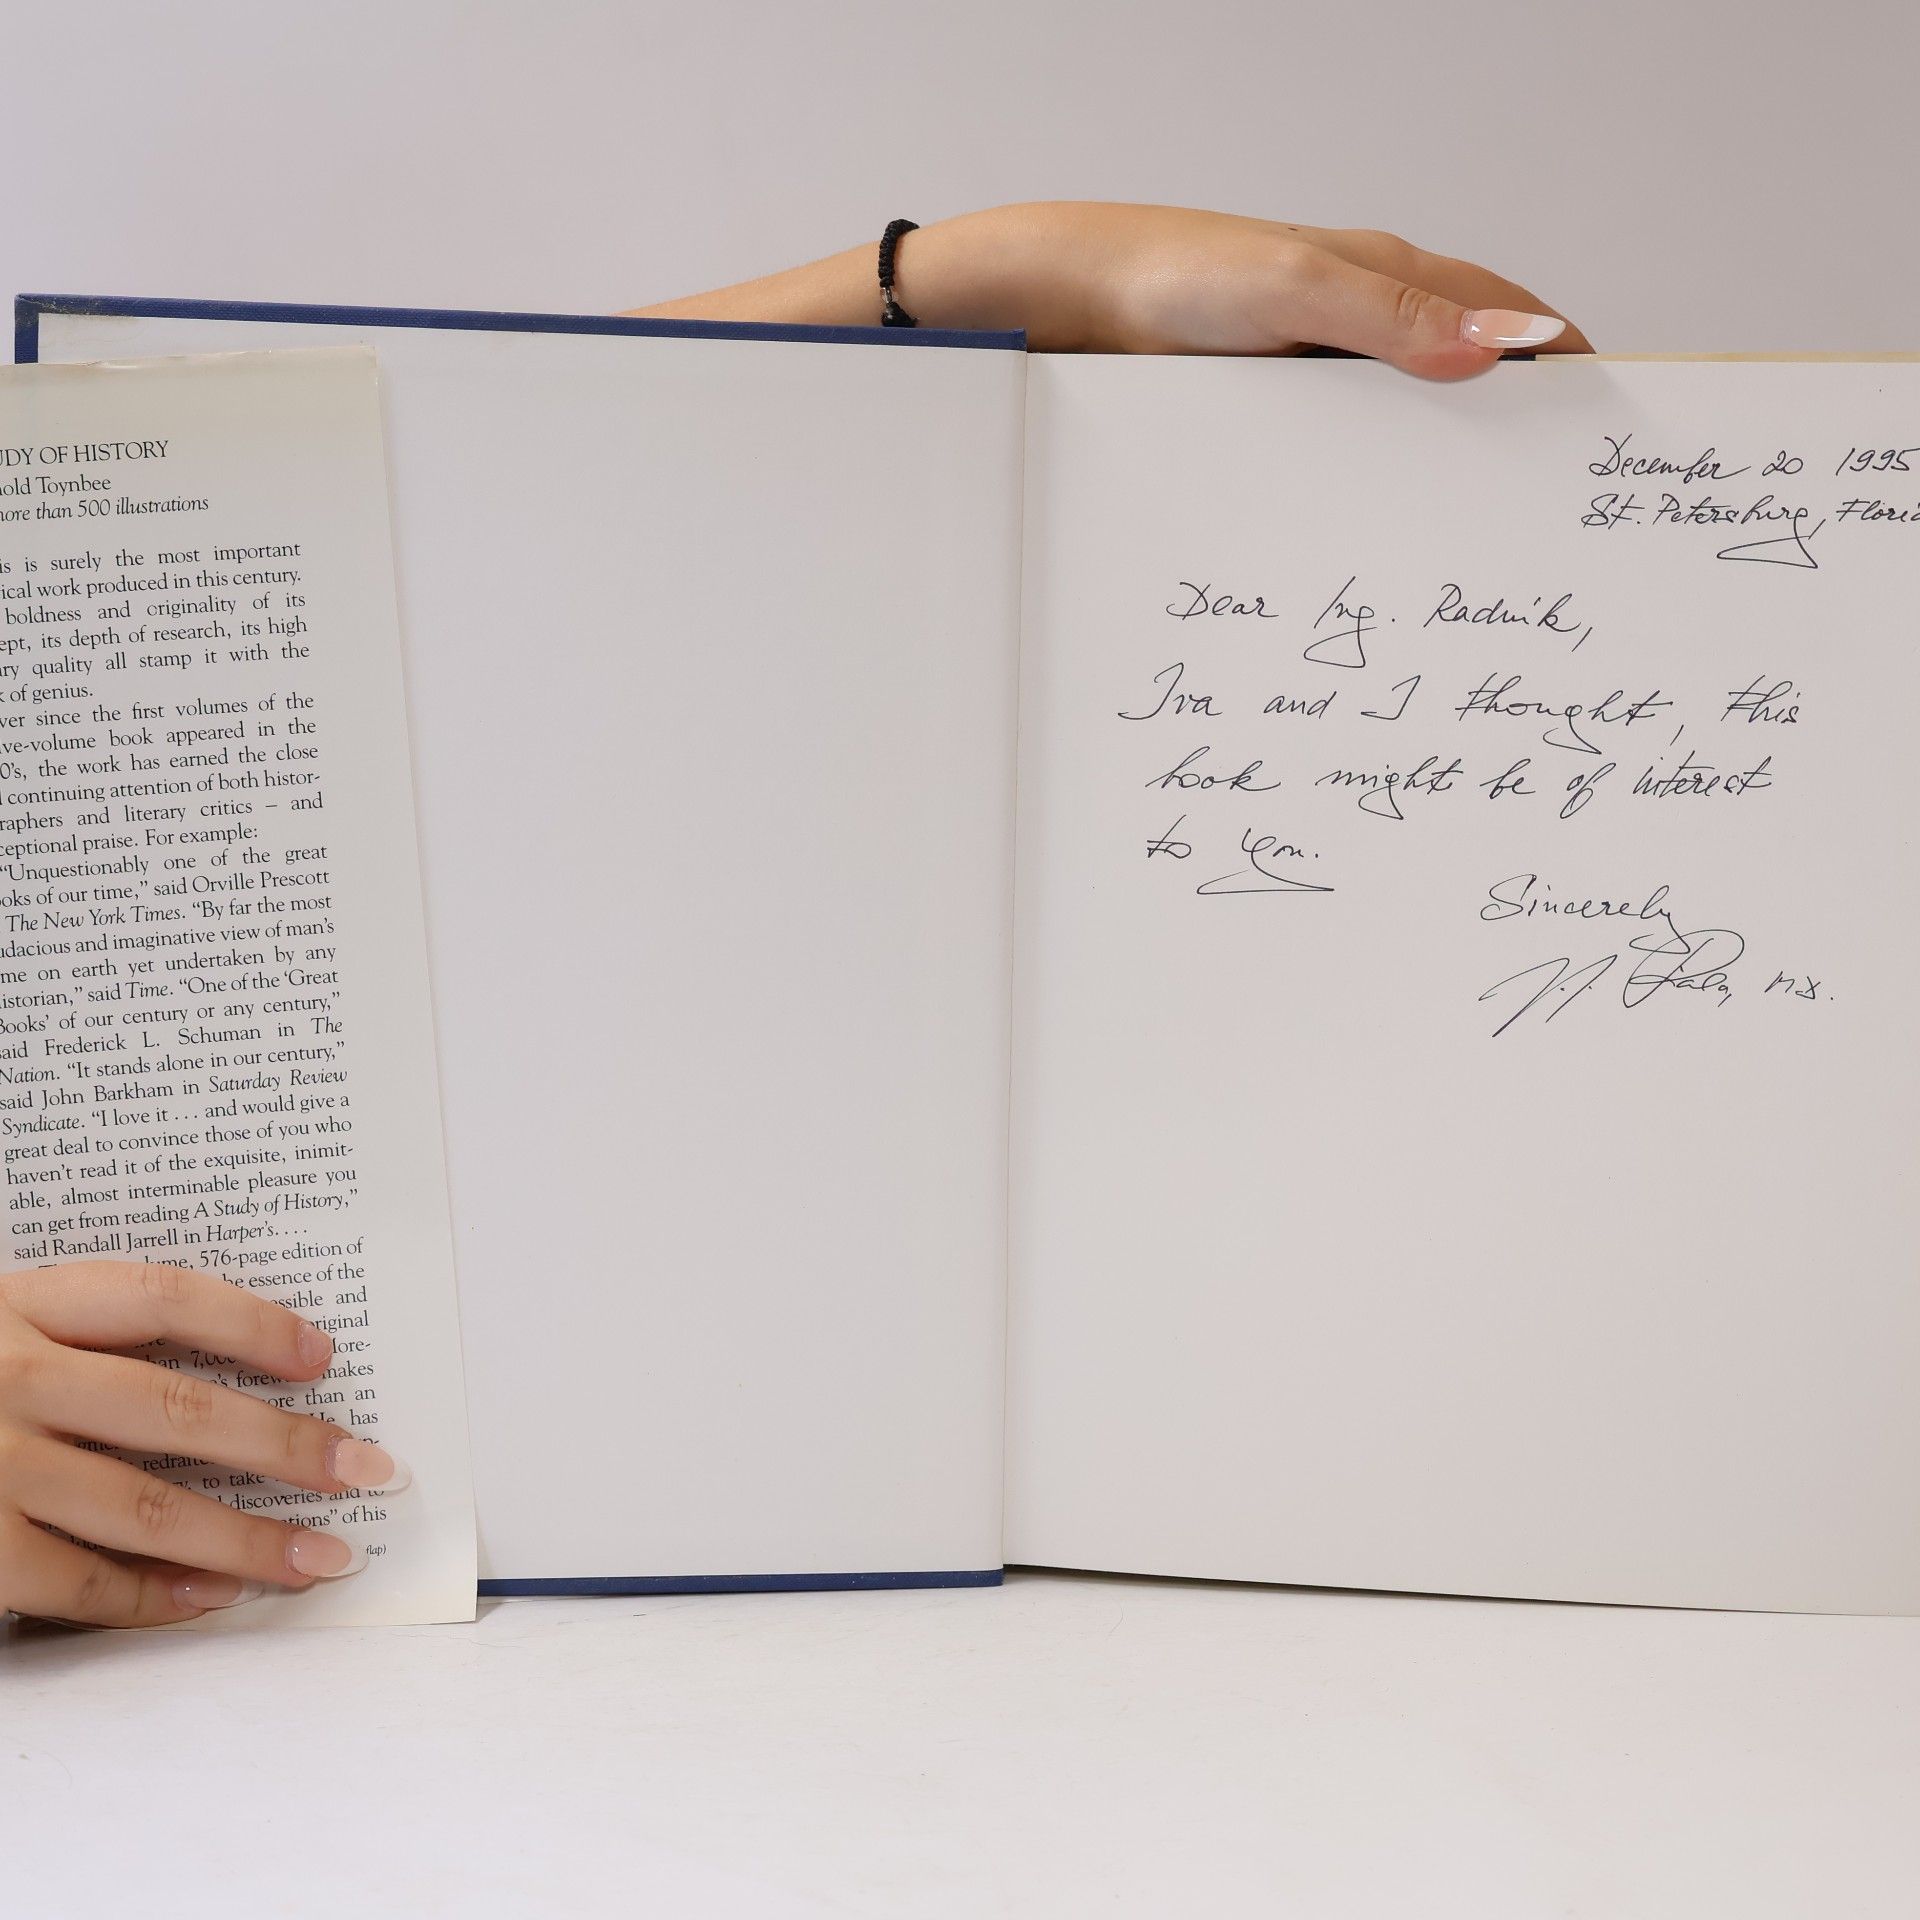 UDY OF HISTORY
nold Toynbee
more than 500 illustrations
is is surely the most important
ical work produced in this century.
boldness and originality of its
ept, its depth of research, its high
ary quality all stamp it with the
k of genius.
ver since the first volumes of the
ve-volume book appeared in the
0's, the work has earned the close
l continuing attention of both histor-
raphers and literary critics – and
ceptional praise. For example:
"Unquestionably one of the great
ooks of our time," said Orville Prescott
The New York Times. "By far the most
udacious and imaginative view of man's
me on earth yet undertaken by any
istorian," said Time. "One of the 'Great
Books' of our century or any century,"
said Frederick L. Schuman in The
Nation. "It stands alone in our century,"
said John Barkham in Saturday Review
Syndicate. "I love it . . . and would give a
great deal to convince those of you who
haven't read it of the exquisite, inimit-
able, almost interminable pleasure you
can get from reading A Study of History,"
said Randall Jarrell in Harper's. . . .
576-page edition of
he essence of the
ossible and
original
More-
han 7,00
's makes
ore than an
He has
to take
discoveries and to
tions" of his
flap)
December 20 1995
St. Petersburg, Florid
Dear Ing. Radnik,
Iva and I thought, this
book might be of interest
to you.
Sincerely
MD.